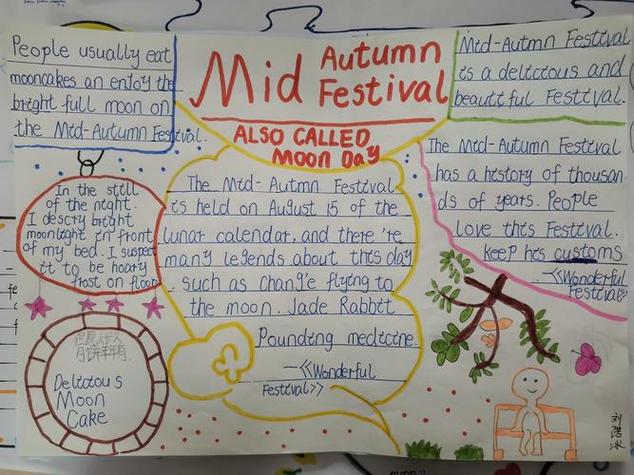 People usually eat
mooncakes an entoy the
bright full moon on
the Mid-Autumn Festival.
Mid Autumn
Festival
ALSO CALLED
Moon Day
Mid-Autmn Festival
is a delicious and
beautiful Festival.
The Mid-Autumn Festival
has a history of thousan
ds of years. People
love this Festival.
keep his customs
—《Wonderful
Festival》
In the still
of the night.
I descry bright
moonlight in front
of my bed. I suspect
it to be hoary
frost on floor
The Mid-Autmn Festival
is held on August 15 of the
lunar calendar, and there 're
many legends about this day
, such as chang'e flying to
the moon. Jade Rabbit
Pounding medicine
—《Wonderful
Festival》
Delicious
Moon
Cake